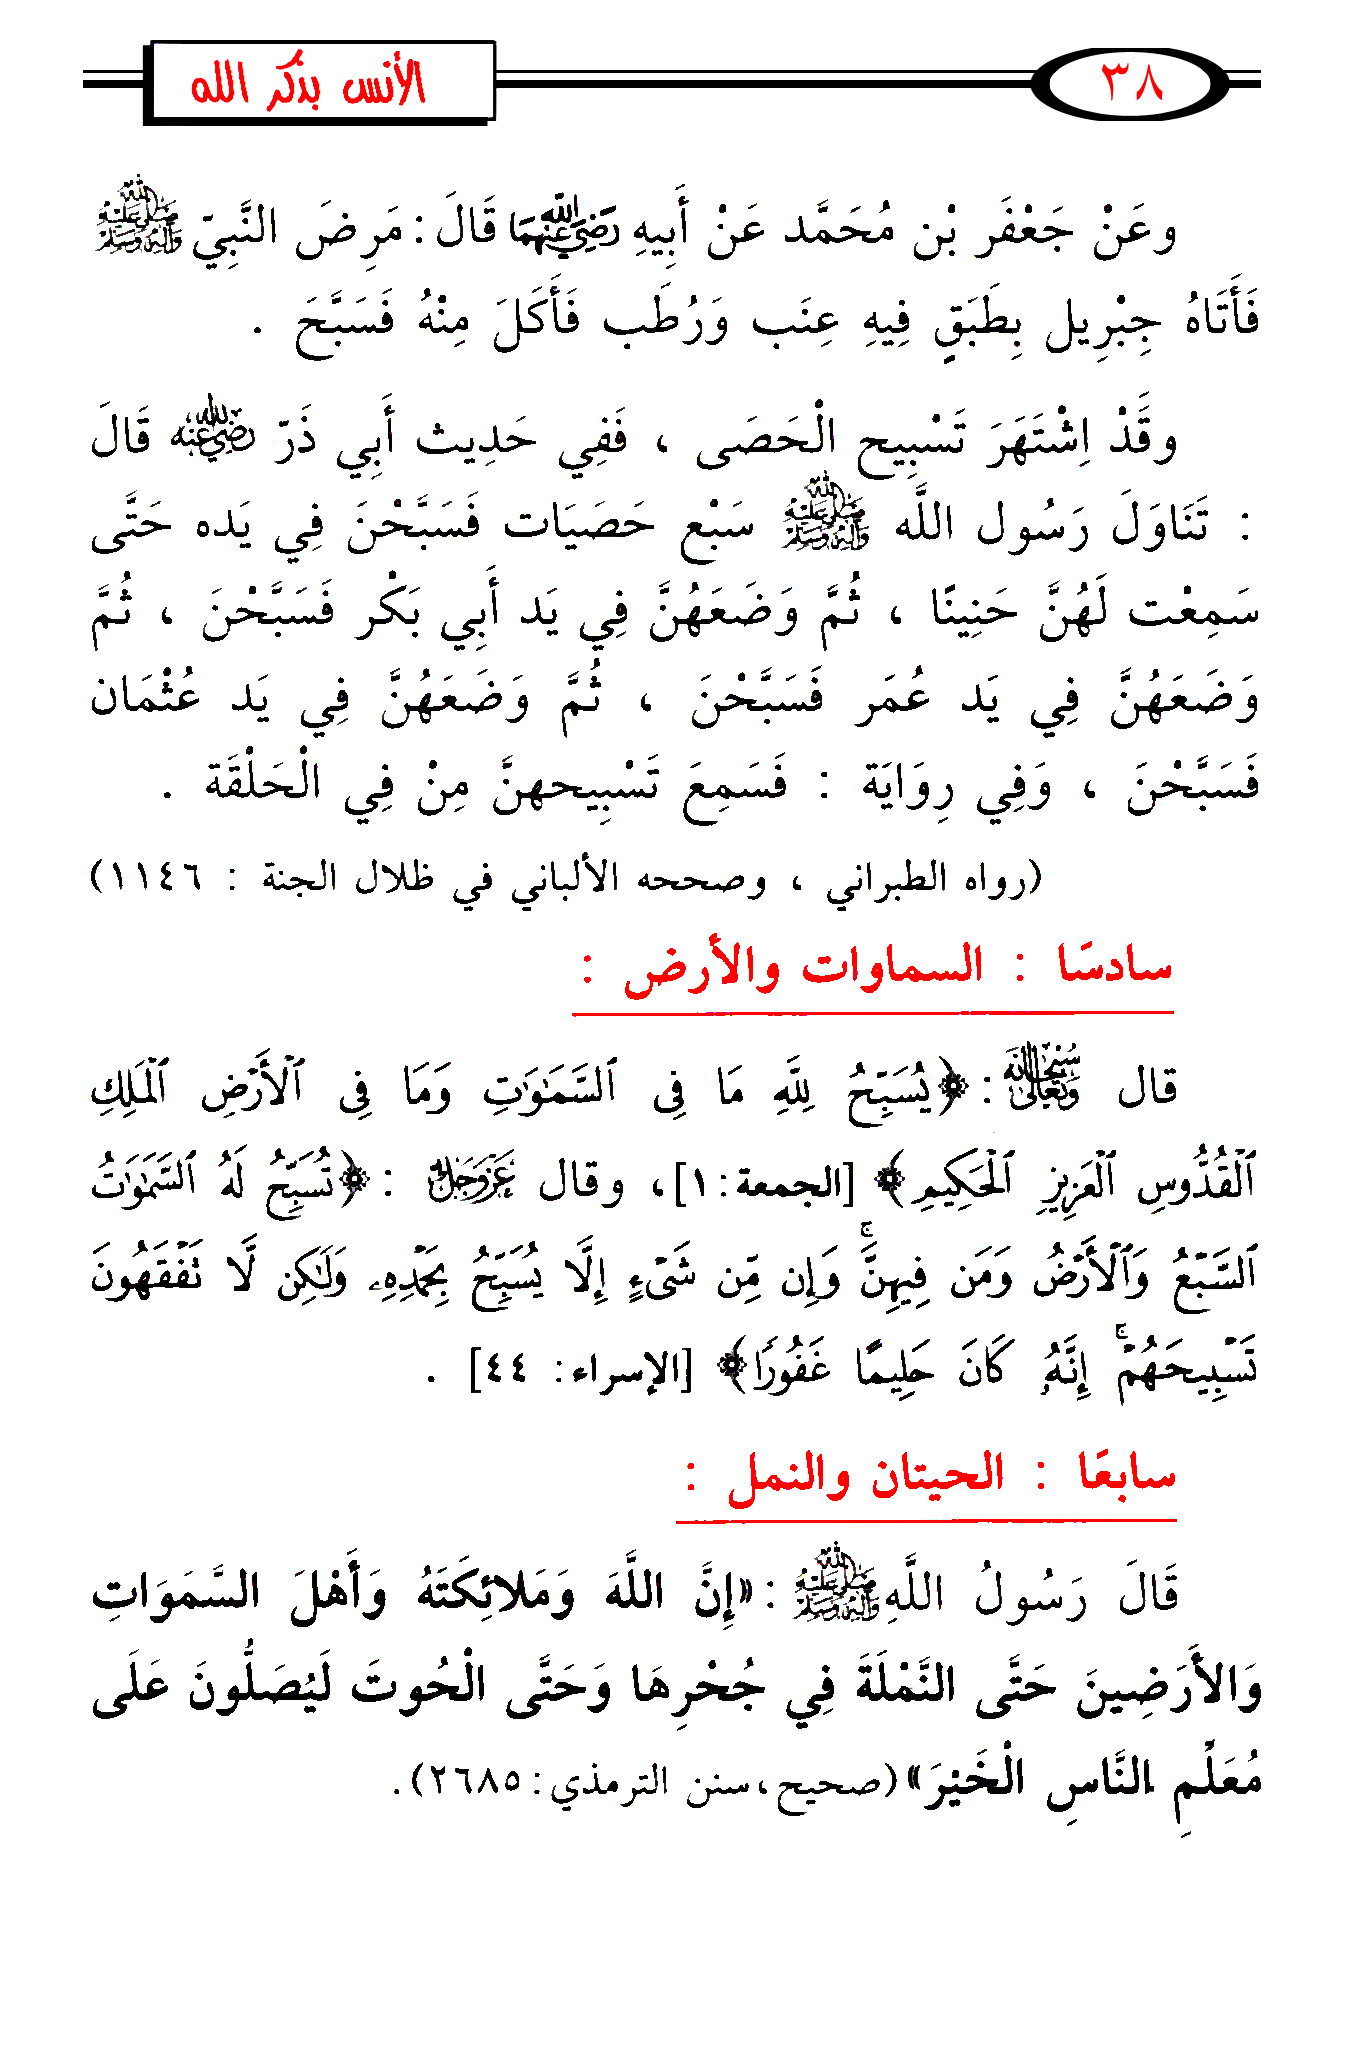 ٣٨
الأنس بذكر الله
وعَنْ جَعْفَر بْن مُحَمَّد عَنْ أَبِيهِ رَضِيَ اللَّهُ عَنْهُمَا قَالَ: مَرِضَ النَّبِيّ صَلَّى اللَّهُ عَلَيْهِ وَآلِهِ وَسَلَّمَ
فَأَتَاهُ جِبْرِيل بِطَبَقٍ فِيهِ عِنَب وَرُطَب فَأَكَلَ مِنْهُ فَسَبَّحَ .
وقَدْ اِشْتَهَرَ تَسْبِيح الْحَصَى ، فَفِي حَدِيث أَبِي ذَرّ رضي الله عنه قَالَ
: تَنَاوَلَ رَسُول اللَّه صلى الله عليه وآله وسلم سَبْع حَصَيَات فَسَبَّحْنَ فِي يَده حَتَّى
سَمِعْت لَهُنَّ حَنِينًا ، ثُمَّ وَضَعَهُنَّ فِي يَد أَبِي بَكْر فَسَبَّحْنَ ، ثُمَّ
وَضَعَهُنَّ فِي يَد عُمَر فَسَبَّحْنَ ، ثُمَّ وَضَعَهُنَّ فِي يَد عُثْمَان
فَسَبَّحْنَ ، وَفِي رِوَايَة : فَسَمِعَ تَسْبِيحهنَّ مِنْ فِي الْحَلْقَة .
(رواه الطبراني ، وصححه الألباني في ظلال الجنة : ١١٤٦)
سادسًا : السماوات والأرض :
قال سُبْحَانَهُ وَتَعَالَى : ﴿يُسَبِّحُ لِلَّهِ مَا فِى ٱلسَّمَٰوَٰتِ وَمَا فِى ٱلْأَرْضِ ٱلْمَلِكِ
ٱلْقُدُّوسِ ٱلْعَزِيزِ ٱلْحَكِيمِ﴾ [الجمعة:١]، وقال عَزَّ وَجَلَّ : ﴿تُسَبِّحُ لَهُ ٱلسَّمَٰوَٰتُ
ٱلسَّبْعُ وَٱلْأَرْضُ وَمَن فِيهِنَّ ۚ وَإِن مِّن شَىْءٍ إِلَّا يُسَبِّحُ بِحَمْدِهِۦ وَلَٰكِن لَّا تَفْقَهُونَ
تَسْبِيحَهُمْ ۚ إِنَّهُۥ كَانَ حَلِيمًا غَفُورًا﴾ [الإسراء: ٤٤] .
سابعًا : الحيتان والنمل :
قَالَ رَسُولُ اللَّهِ صلى الله عليه وآله وسلم : «إِنَّ اللَّهَ وَمَلائِكَتَهُ وَأَهْلَ السَّمَوَاتِ
وَالأَرَضِينَ حَتَّى النَّمْلَةَ فِي جُحْرِهَا وَحَتَّى الْحُوتَ لَيُصَلُّونَ عَلَى
مُعَلِّمِ النَّاسِ الْخَيْرَ» (صحيح، سنن الترمذي: ٢٦٨٥).